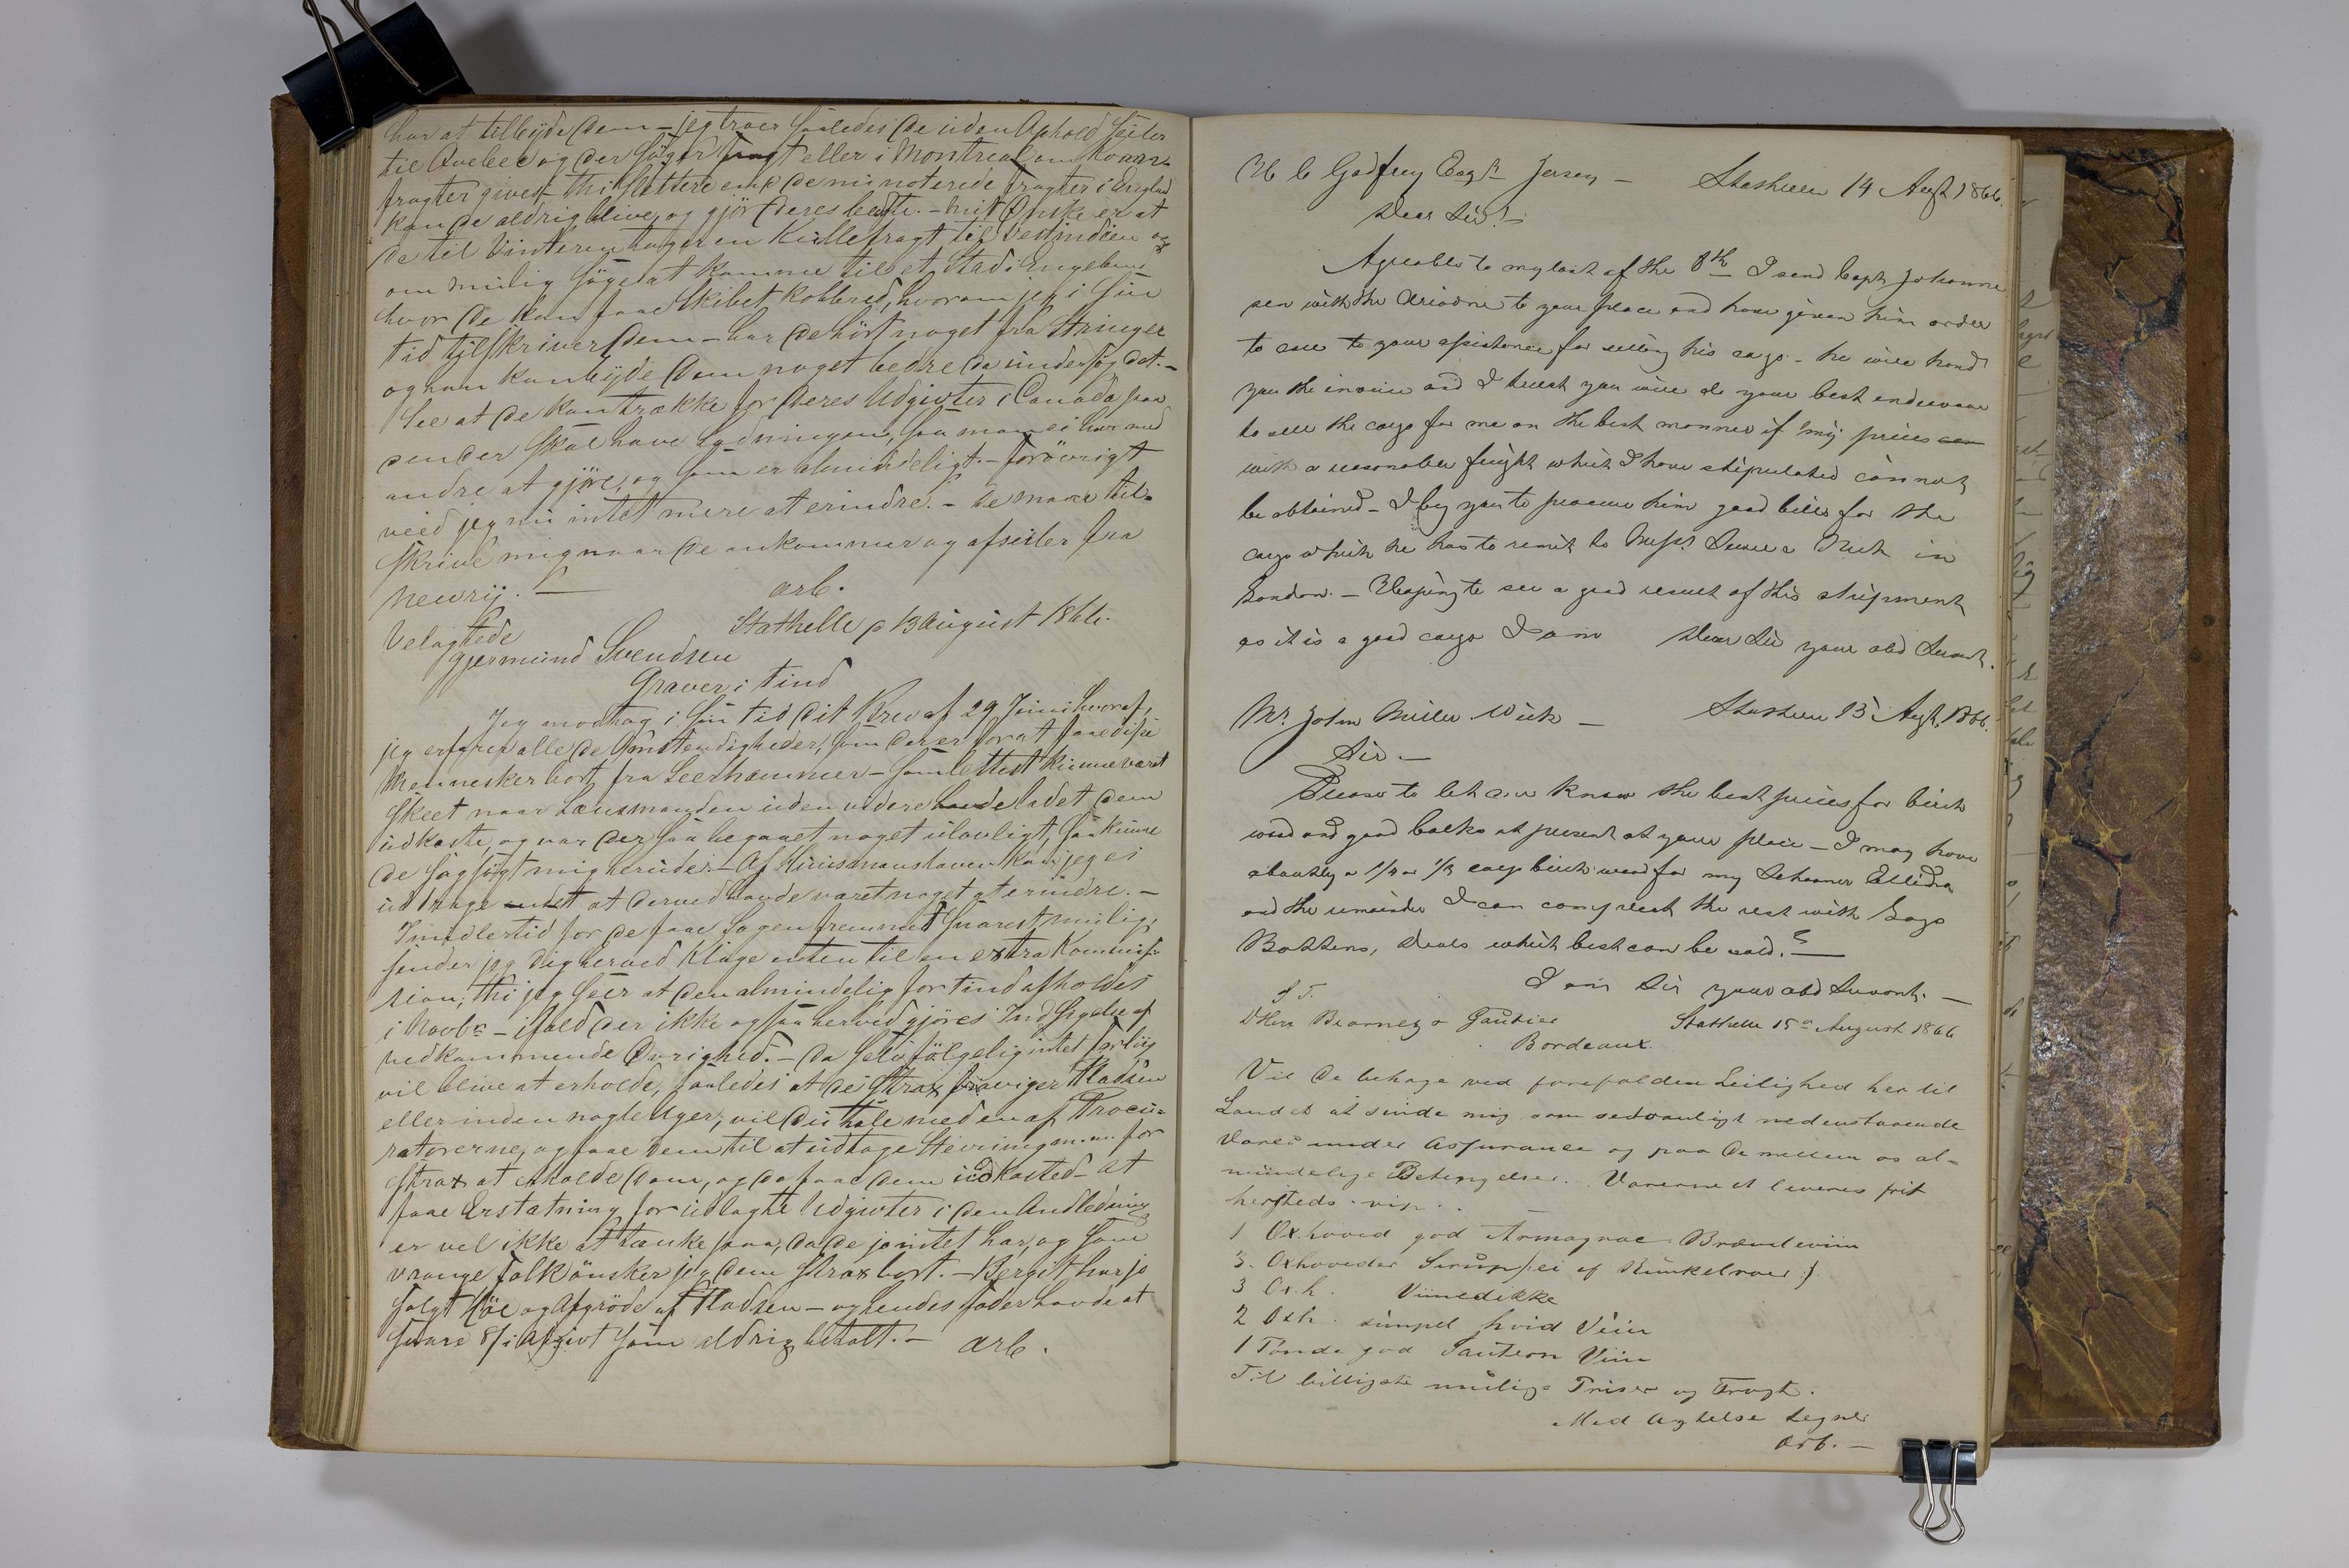 har at tilbyde Dem – jeg troer saaledes De uden Ophold seiler
til Quebec og der søger fragt eller i Montreal om Korn-
fragter gives – thi slettere end de nu noterede fragter i England
kan de aldrig blive, og gjør Deres bedste. – Mit Ønske er at
De til Vinteren tager en Kullefragt til Vestindien og
om mulig søge at komme til et Sted i Engeland
hvor De kan faae Skibet Kobbred, hvorom jeg i sin
tid tilskriver Dem – har De hørt noget fra Stringer
og han kan byde Dem noget bedre da undersøg det. –
See at De kan trække for Deres Udgivter i Canada paa
den der skal have Ladningen, saa man ei har med
andre at gjøre, og som er almindeligt. – forøvrigt
veed jeg nu intet mere at erindre. – De maae til-
skrive mig naar De ankommer og afseiler fra
Newry. –
arb.
Velagtede
Stathelle p 13 August 1866.
Gjermund Svendsen
Graver i Tind
Jeg modtog i sin tid dit Brev af 29 Juni hvoraf,
jeg erfarer alle de Omstendigheder, som der er for at faae disse
Mennesker bort fra Leerhammer – som lettest kunne været
skeet naar Lænsmanden uden videre havde ladet dem
udkaste, og var der saa begaaet noget ulovligt, saa kunne
de sagsøgt mig herude. – Af Huusmans kan jeg ei
uddrage at derved havde været noget at erindre. –
Imidlertid for at faae Sagen fremmet snarest mulig,
sender jeg dig herved Klage enten til en extra Kommis-
sion, thi jeg seer at den almindelig for Tind afholdes
i Novbr – ifald der ikke ogsaa herved gjøres Indsigelse af
vedkommende Øvrighed. – Da selvfølgelig intet forliig
vil blive at erholde, saaledes at de strax fraviger Pladsen
eller inden nogle Uger, vil du tale med en af Procu-
ratorerne, og faae dem til at udtage Stevning m.m. for
strax at erholde Dom, og da faae dem udkasted – At
faae Erstatning for udlagte Udgivter i den Andledning
er vel ikke at tænke paa, da de jo intet har, og som
vrange folk ønsker jeg dem strax bort. – Bergit har jo
solgt Høe og Afgrøde af Pladsen – og hendes fader havde at
svare i Afgivt som aldrig betalt. –
arb.
Godfrey Esqr Jersey –
Stathelle 14 Augt 1866.
Dear Sir! –
Agreable to my last of the 8th I send Capt Johanne
sen with the Ariadne to your place and have given him order
to call to your assistance for selling his cargo – he will hand
you the invoice and I trust you will do your best endeavour
to sell the cargo for me on the best manner if my prices can
with a reasonable freight which I have stipulated cannot
be obtained – I beg you to procure him good bills for the
cargo which he has to remit to Messrs in
London. – Hoping to see a good result of this shipment
as it is a good cargo I am Dear Sir your obd Servant.
Mr. John Miller Wick –
Stathelle 15 Augt. 1866.
Sir. –
Please to let me know the best prices for birch
wood and good balks at present at your place – I may have
a 1/4 or 1/3 cargo birch wood for my Schooner Ellida
and the remainder I can compleat the rest with
Battens, deals which best can be sold. –
I am Sir your obd Servant. –
S T.
DHrr Bearnez & Gautier
Stathelle 15de August 1866
Bordeaux.
Vil De behage ved forefalden Leilighed her til
Landet at sende mig som sedvanligt nedenstaaende
Varer under Assurance og paa De mellem os al-
mindelige Betingelser. – Varerne at leveres frit
hersteds. viz. .
1 Oxhoved god Armagnac Brændeviin
3. Oxhoveder Sirup (ei af Runkelroer)
3 Oxh. Viinedikke
2 Oxh. simpel hvid Viin
1 Tønde god Sautern Viin
Til billigste mulige Priser og Fragt.
Med Agtelse tegner
arb. –